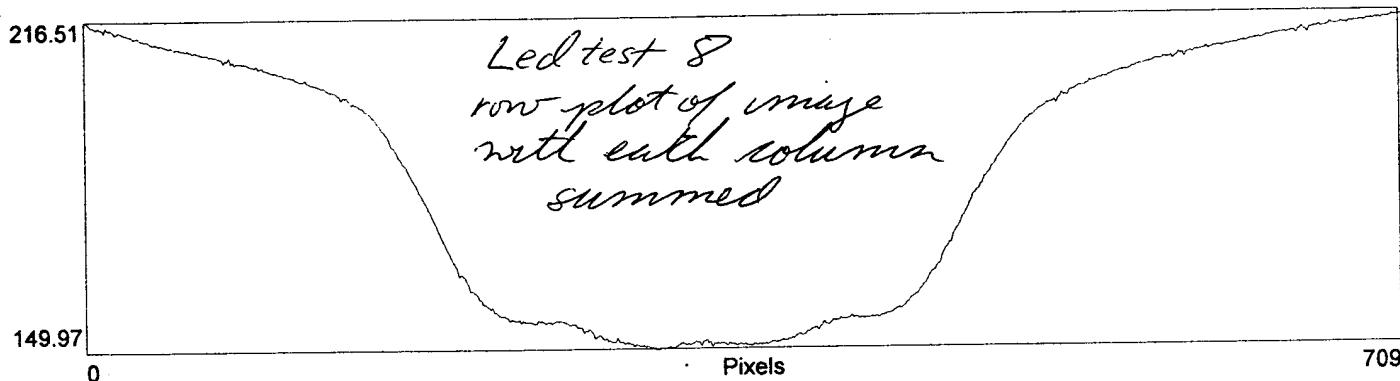 216.51
Led test 8
row plot of image
with each column
summed
149.97
0
Pixels
709